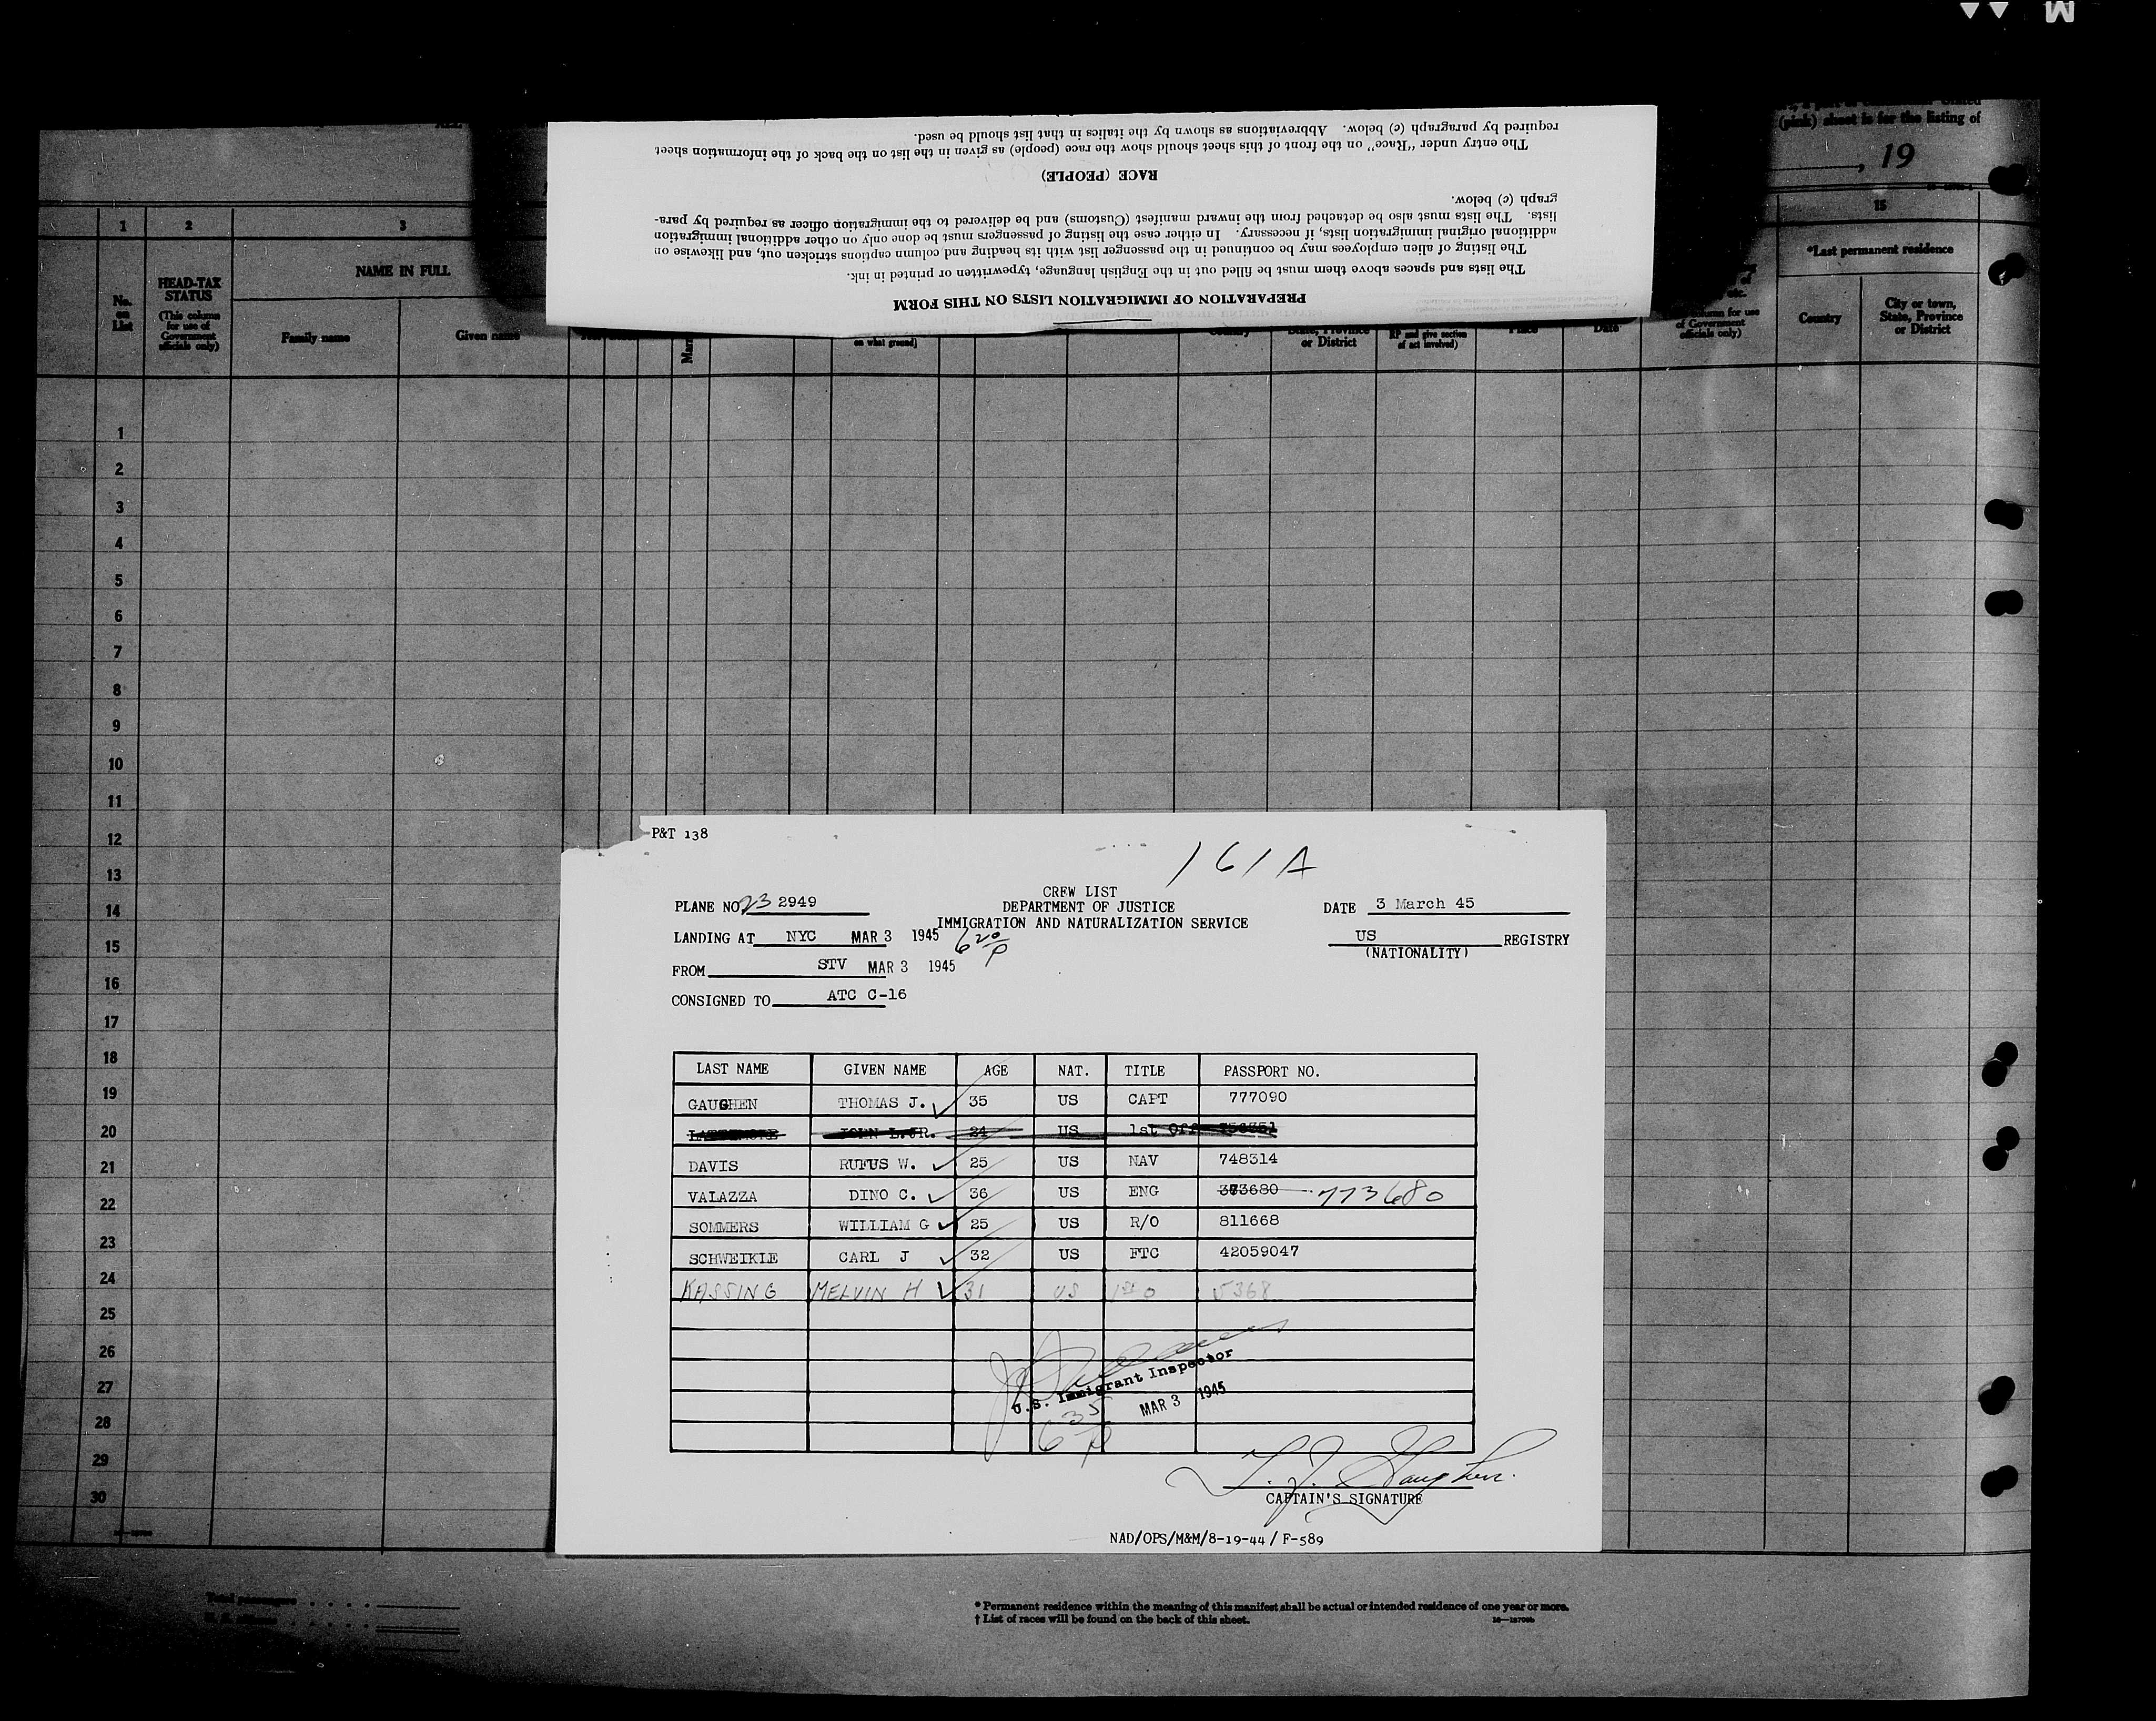 (pink) sheet is for the listing of
, 19
PREPARATION OF IMMIGRATION LISTS ON THIS FORM
The lists and spaces above them must be filled out in the English language, typewritten or printed in ink.
The listing of alien employees may be continued in the passenger list with its heading and column captions stricken out, and likewise on
additional original immigration lists, if necessary. In either case the listing of passengers must be done only on other additional immigration
lists. The lists must also be detached from the inward manifest (Customs) and be delivered to the immigration officer as required by para-
graph (c) below.
RACE (PEOPLE)
The entry under "Race" on the front of this sheet should show the race (people) as given in the list on the back of the information sheet
required by paragraph (c) below. Abbreviations as shown by the italics in that list should be used.
1 2 3 15
No. on List
HEAD-TAX STATUS
(This column for use of Government officials only)
NAME IN FULL
Family name Given name
on what ground]
Country
State, Province or District
and give section of act involved)
Place Date
column for use of Government officials only)
*Last permanent residence
Country
City or town, State, Province or District
1
2
3
4
5
6
7
8
9
10
11
12
13
14
15
16
17
18
19
20
21
22
23
24
25
26
27
28
29
30
P&T 138
161A
CREW LIST
PLANE NO 23 2949 DEPARTMENT OF JUSTICE DATE 3 March 45
IMMIGRATION AND NATURALIZATION SERVICE
LANDING AT NYC MAR 3 1945 6 20 P US REGISTRY
(NATIONALITY)
FROM STV MAR 3 1945
CONSIGNED TO ATC C-16
LAST NAME GIVEN NAME AGE NAT. TITLE PASSPORT NO.
GAUGHEN THOMAS J. 35 US CAPT 777090
JOHN L.JR. 24 US 1st Off
DAVIS RUFUS W. 25 US NAV 748314
VALAZZA DINO C. 36 US ENG 373680 773680
SOMMERS WILLIAM G 25 US R/O 811668
SCHWEIKLE CARL J 32 US FTC 42059047
KASSING MELVIN H 31 US 1st O 5368
U.S. Immigrant Inspector
MAR 3 1945
6 35 P
T. J. Gaughen
CAPTAIN'S SIGNATURE
NAD/OPS/M&M/8-19-44/ F-589
Total passengers
* Permanent residence within the meaning of this manifest shall be actual or intended residence of one year or more.
† List of races will be found on the back of this sheet.